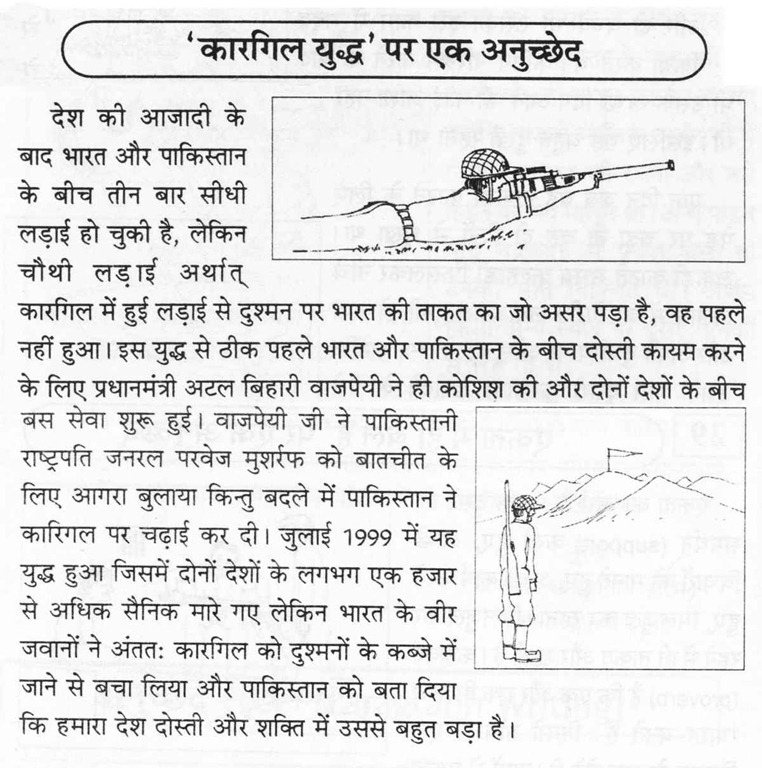 ‘कारगिल युद्ध’ पर एक अनुच्छेद
देश की आजादी के
बाद भारत और पाकिस्तान
के बीच तीन बार सीधी
लड़ाई हो चुकी है, लेकिन
चौथी लड़ाई अर्थात्
कारगिल में हुई लड़ाई से दुश्मन पर भारत की ताकत का जो असर पड़ा है, वह पहले
नहीं हुआ। इस युद्ध से ठीक पहले भारत और पाकिस्तान के बीच दोस्ती कायम करने
के लिए प्रधानमंत्री अटल बिहारी वाजपेयी ने ही कोशिश की और दोनों देशों के बीच
बस सेवा शुरू हुई। वाजपेयी जी ने पाकिस्तानी
राष्ट्रपति जनरल परवेज मुशर्रफ को बातचीत के
लिए आगरा बुलाया किन्तु बदले में पाकिस्तान ने
कारिगल पर चढ़ाई कर दी। जुलाई 1999 में यह
युद्ध हुआ जिसमें दोनों देशों के लगभग एक हजार
से अधिक सैनिक मारे गए लेकिन भारत के वीर
जवानों ने अंतत: कारगिल को दुश्मनों के कब्जे में
जाने से बचा लिया और पाकिस्तान को बता दिया
कि हमारा देश दोस्ती और शक्ति में उससे बहुत बड़ा है।